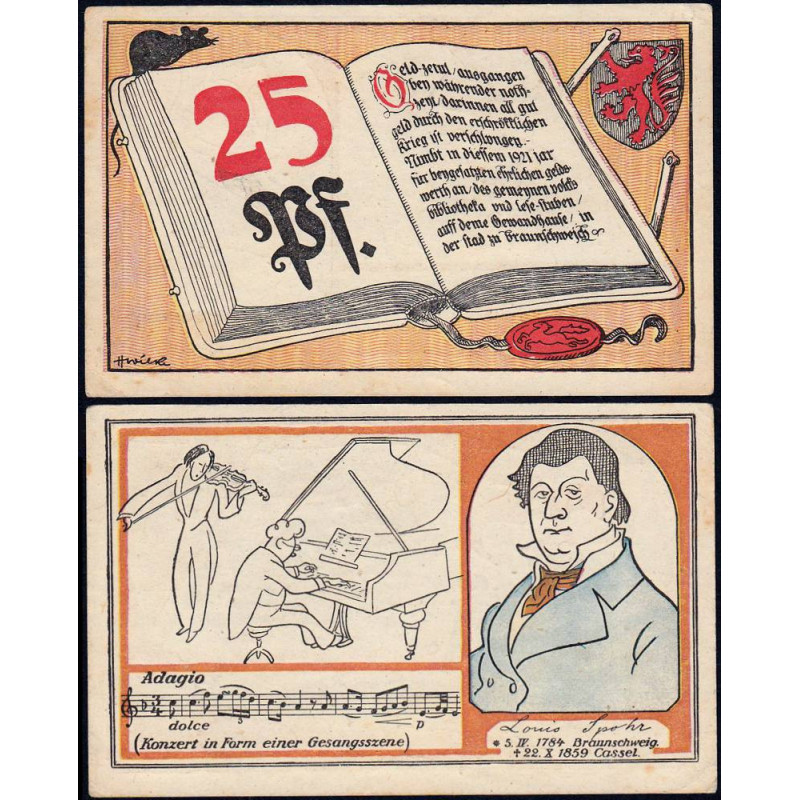 25
Pf.
Geld-zetul / ausgangen
bey währender noth-
zeyt / darinnen all gut
geld durch den erschröklichen
Krieg ist verschlongen.
Nimbt in diessem 1921 jar
für beygesatzten öhrlichen gelds-
werth an / des gemeynen volcks
bibliotheka vnd lese-stuben /
auff deme Gewandhause / in
der stad zu Braunschweisch
Adagio
dolce
p
3
(Konzert in Form einer Gesangsszene)
Louis Spohr
* 5. IV. 1784 Braunschweig.
† 22. X 1859 Cassel.